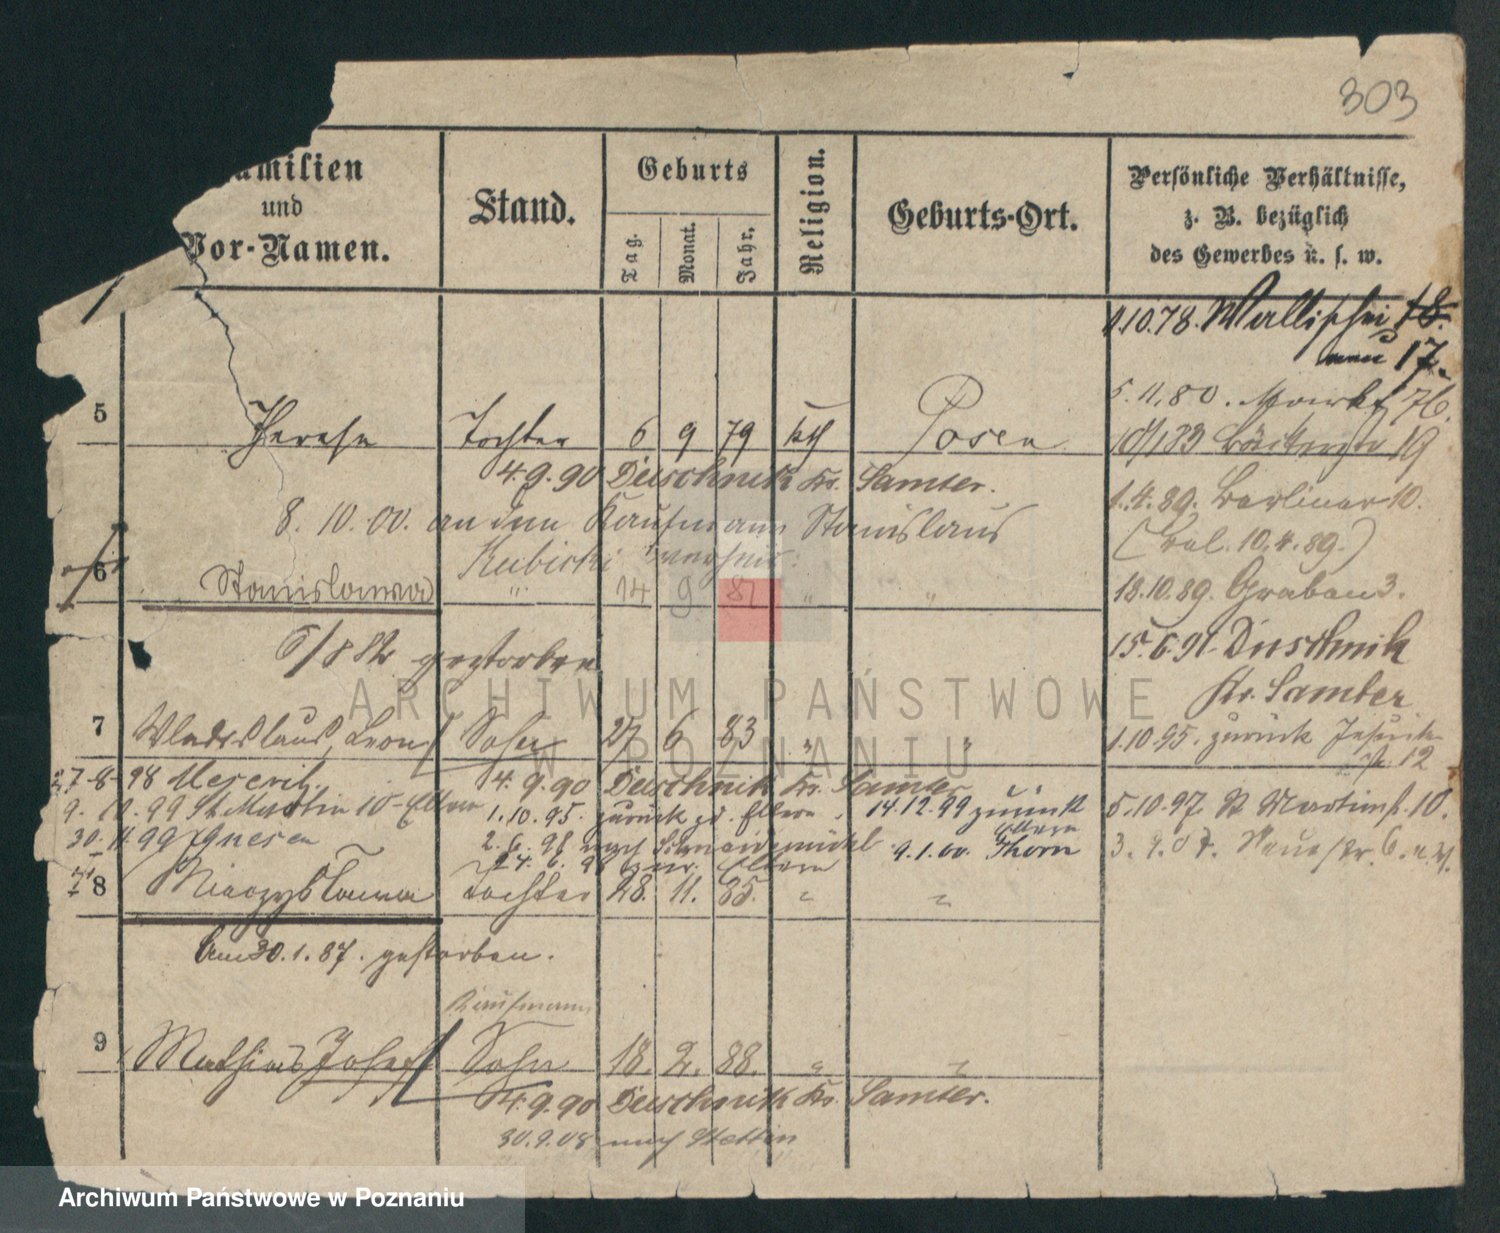 303
Familien
und
Vor-Namen.
Stand.
Geburts
Tag.
Monat.
Jahr.
Religion.
Geburts-Ort.
Persönliche Verhältnisse,
z. B. bezüglich
des Gewerbes u. s. w.
1.10.78. Wallischei 18.
nun 17.
5.4.80. Markt 76.
5 Therese Tochter 6 9 79 kth Posen
4.9.90 Duschnik Kr. Samter.
1.4.89. Berliner 10.
8. 10. 00. an den Kaufmann Stanislaus
Kubicki
(Pol. 10.4.89.)
6 Stanislawa " 14 9 81 " "
18.10.89. Graben 3.
6/8 82 gestorben
15.6.91. Duschnik
Kr. Samter
7 Wladislaus, Leon Sohn 27 6 83 " "
1.10.95. zurück
12
27-8-98 Meserit.
4.9.90 Duschnik Kr. Samter
9. 10. 99 St. Martin 10 - Eltern
1.10.95. zurück zd. Eltern.
14.12.99 zurück
Eltern
5.10.97. St Martinst. 10.
30. 99 Gnesen
2. 6. 98 nach Schneidemühl
9.1.00. Thorn
24. 6. 98 zur. Eltern
8 Mieczyslawa Tochter 28. 11. 85. " "
Am 30.1.87. gestorben.
Kaufmann
9 Mathias Josef Sohn 18. 2. 88. " "
4.9.90 Duschnik Kr. Samter.
30.9.08 nach Stettin
ARCHIWUM PAŃSTWOWE
W POZNANIU
Archiwum Państwowe w Poznaniu